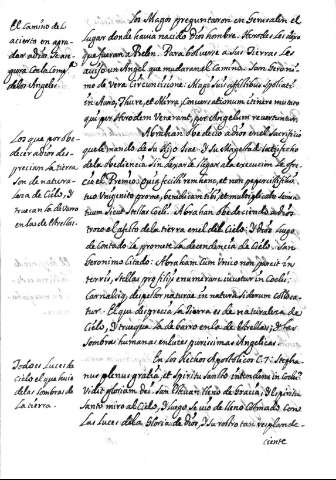 El camino de l
acierta en agra-
dar a dios se ase-
gura con la comp.ª
de los Angeles
los Magos preguntaron en Gerusalen el
lugar donde havia nacido Dios hombre. Herodes les dijo
que fuessen a Belen. Para bolverse a sus Tierras les
aviso un Angel que mudaran el camino. San Geroni-
mo de Vera circumcisione. Magi suis
Auro, Thure, et Mirra, conversationum itinere mutato
qui per Herodem Venerant, per Angelum revertuntur.
Los que por obe-
decer a dios des-
precian la tierra
son de natura-
leza de Cielo, y
truecan la de barro
en la de estrellas.
Abraham obedecio a dios en el sacrificio
que le mando de su Hijo Isac. Y su Magestad satisfecho
de la obediencia sin dejarle llegar a la execucion le ofre-
cio el Premio. Quia fecisti rem hanc, et non pepercisti filio
tuo Unigenito propter me, benedicam tibi, et multiplicabo semen
tuum sicut stellas Celi. Abraham obedeciendo a dios
troco el afecto de la tierra en el del Cielo; y Dios luego
de contado le promete la decendencia de Cielo. San
Geronimo citado. Abraham cum Unico non parcit in
terris, stellas pro filijs enumerare iuvatur in Coelis:
Carnalisq. despector naturae in natura siderum colloca-
tur. El que desprecia la tierra es de naturaleza de
Cielo, y trueque la de barro en la de Estrellas; y las
sombras humanas en luces purissimas Angelicas.
Todo es Luces de
cielo el que huie
de las sombras de
la tierra.
En los Hechos Apostolicos C. 7. Stepha-
nus plenus gratia, et Spiritu Sancto intendens in Coelum
Vidit gloriam Dei. San Estevan lleno de Gracia, y de Espiritu
Santo miro al Cielo, y luego se vio de lleno colmado con
las luces de la Gloria de Dios, y su rostro tan resplande-
ciente